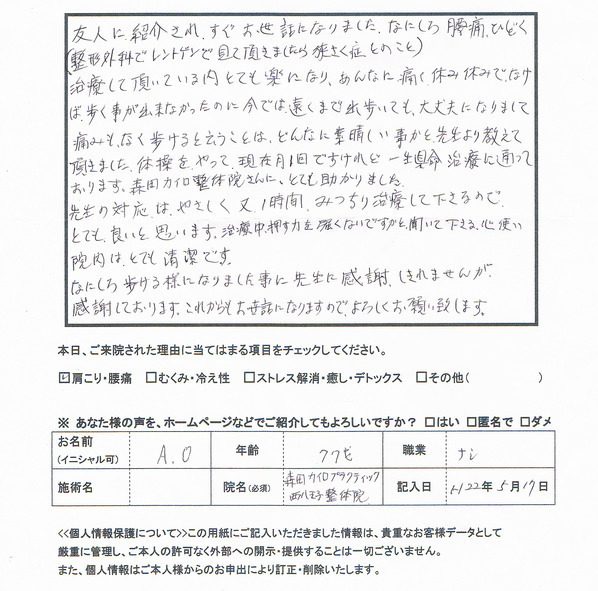 友人に紹介され、すぐお世話になりました。なにしろ腰痛、ひどく
(整形外科でレントゲンで見て頂きましたら狭さく症とのこと)
治療して頂いている内とても楽になり、あんなに痛く休み休みでなけ
ば歩く事が出来なかったのに今では遠くまで出歩いても、大丈夫になりまして
痛みもなく歩けると云うことは、どんなに素晴しい事かと先生より教えて
頂きました。体操をやって、現在月1回ですけれど一生懸命治療に通って
おります。森田カイロ整体院さんに、とても助かりました。
先生の対応はやさしく又、1時間みっちり治療して下さるので
とても良いと思います。治療中押す力を強くないですかと聞いて下さる。心使い
院内はとても清潔です。
なにしろ歩ける様になりました事に先生に感謝しきれませんが
感謝しております。これからもお世話になりますので、よろしくお願い致します。
本日、ご来院された理由に当てはまる項目をチェックしてください。
☑肩こり・腰痛 □むくみ・冷え性 □ストレス解消・癒し・デトックス □その他( )
※ あなた様の声を、ホームページなどでご紹介してもよろしいですか? □はい □匿名で □ダメ
お名前 (イニシャル可) A.O 年齢 77才 職業 ナシ
施術名 院名(必須) 森田カイロプラクティック 西八王子整体院 記入日 H22年5月17日
<<個人情報保護について>>この用紙にご記入いただきました情報は、貴重なお客様データとして
厳重に管理し、ご本人の許可なく外部への開示・提供することは一切ございません。
また、個人情報はご本人様からのお申出により訂正・削除いたします。